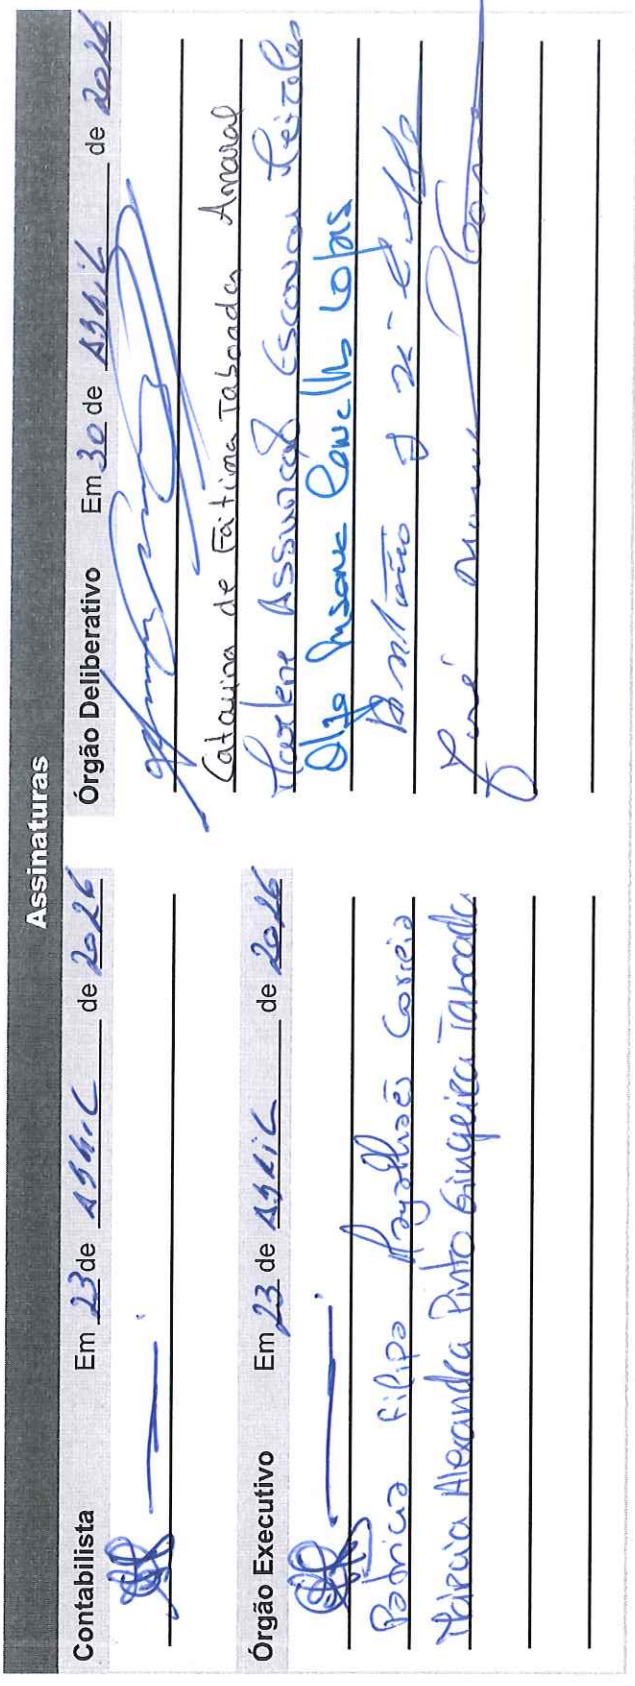 Assinaturas
Contabilista Em 23 de Abril de 2026
Órgão Executivo Em 23 de Abril de 2026
Patricia Filipa Magalhães Correia
Márcia Alexandra Pinto Gingeira Taboada
Órgão Deliberativo Em 30 de Abril de 2026
Catarina de Fátima Taboada Amaral
Marlene Assunção Escovar Meireles
Olga Susana Carvalho Lopes
António
José